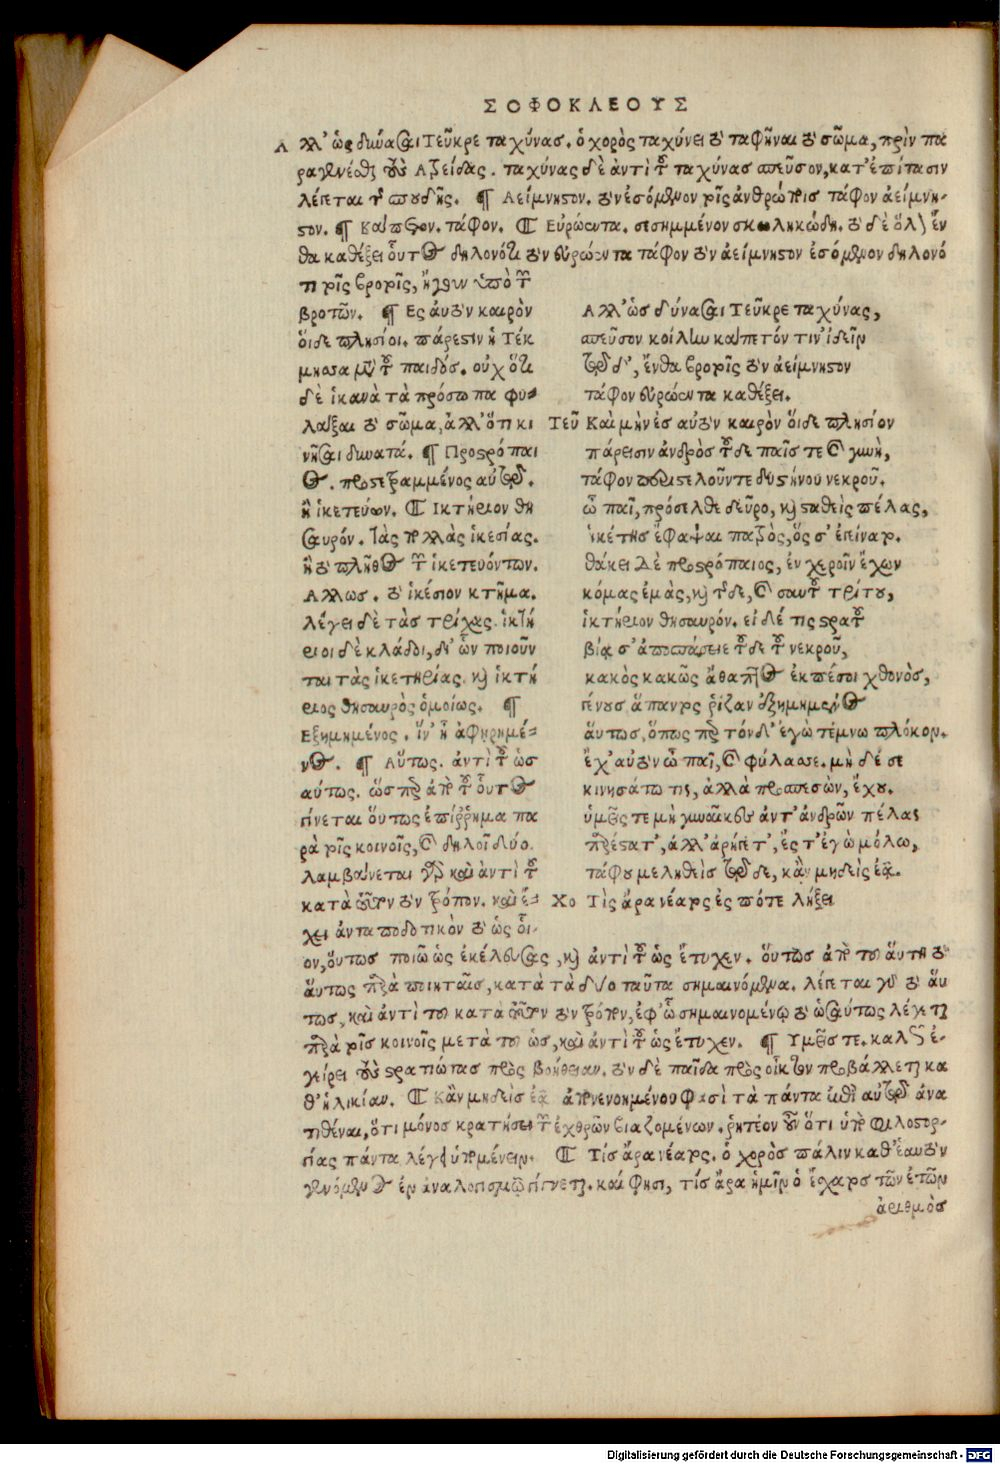 ΣΟΦΟΚΛΕΟΥΣ
Αλλ' ὡς δύνασαι Τεῦκρε ταχύνας. ὁ χορὸς ταχύνει τὸ ταφῆναι τὸ σῶμα, πρὶν πα
ραγενέσθαι τοὺς Ατρείδας. ταχύνας δὲ ἀντὶ τοῦ ταχύνας σπεῦσον, κατ' ἐπίτασιν
λέγεται τῆς σπουδῆς. ¶ Αείμνηστον. τὸν ἐσόμενον τοῖς ἀνθρώποις τάφον ἀείμνη-
στον. ¶ Κάπετον. τάφον. ¶ Εὐρώεντα. σεσημμένον σκωληκώδη. τὸ δὲ ὅλον ἔν
θα καθέξει οὗτος δηλονότι τὸν εὐρώεντα τάφον τὸν ἀείμνηστον ἐσόμενον δηλονό
τι τοῖς βροτοῖς, ἤγουν ὑπὸ τῶν
βροτῶν. ¶ Ες αὐτὸν καιρὸν
οἵδε πλησίοι. πάρεστιν ἡ Τέκ
μησσα μετὰ τοῦ παιδός. οὐχ ὅτι
δὲ ἱκανὰ τὰ πρόσωπα φυ-
λάξαι τὸ σῶμα, ἀλλ' ὅτι κι
νῆσαι δυνατά. ¶ Προστρόπαι
ος. προστετραμμένος αὐτῷ.
ἢ ἱκετεύων. ¶ Ικτήριον θη
σαυρόν. τὰς πολλὰς ἱκεσίας.
ἢ τὸ πλῆθος τῶν ἱκετευόντων.
Αλλως. τὸ ἱκέσιον κτῆμα.
λέγει δὲ τὰς τρίχας. ἱκτή
ριοι δὲ κλάδοι, δι' ὧν ποιοῦν
ται τὰς ἱκετηρίας. καὶ ἱκτή
ριος θησαυρὸς ὁμοίως. ¶
Εξημημένος. ἵν' ᾖ ἀφῃρημέ-
νος. ¶ Αὕτως. ἀντὶ τοῦ ὡς
αύτως. ὥσπερ ἀπὸ τοῦ οὗτος
γίνεται οὕτως ἐπίρρημα πα
ρὰ τοῖς κοινοῖς, καὶ δηλοῖ δύο.
λαμβάνεται γὰρ καὶ ἀντὶ τοῦ
κατὰ τοῦτον τὸν τρόπον. καὶ ἔ-
χει ἀνταποδοτικὸν τὸ ὡς οἷ-
Αλλ' ὡς δύνασαι Τεῦκρε ταχύνας,
σπεῦσον κοίλην κάπετόν τιν' ἰδεῖν
τῷ δ', ἔνθα βροτοῖς τὸν ἀείμνηστον
τάφον εὐρώεντα καθέξει.
Τεῦ Καὶ μὴν ἐς αὐτὸν καιρὸν οἵδε πλησίον
πάρεισιν ἀνδρὸς τοῦδε παῖς τε καὶ γυνὴ,
τάφον περιστελοῦντε δυστήνου νεκροῦ.
ὦ παῖ, πρόσελθε δεῦρο, καὶ σταθεὶς πέλας,
ἱκέτης ἔφαψαι πατρὸς, ὅς σ' ἐγείνατο.
θάκει δὲ προστρόπαιος, ἐν χεροῖν ἔχων
κόμας ἐμὰς, καὶ τῆσδε, καὶ σαυτοῦ τρίτου,
ἱκτήριον θησαυρόν. εἰ δέ τις στρατοῦ
βίᾳ σ' ἀποσπάσειε τοῦδε τοῦ νεκροῦ,
κακὸς κακῶς ἄθαπτος ἐκπέσοι χθονὸς,
γένους ἅπαντος ῥίζαν ἐξημημένος
αὕτως, ὅπως περ τόνδ' ἐγὼ τέμνω πλόκον.
ἔχ' αὐτὸν ὦ παῖ, καὶ φύλασσε. μὴ δέ σε
κινησάτω τις, ἀλλὰ προσπεσὼν, ἔχου.
ὑμεῖς τε μὴ γυναῖκες ἀντ' ἀνδρῶν πέλας
παρέστατ', ἀλλ' ἀρήγετ', ἔς τ' ἐγὼ μόλω,
τάφου μεληθεὶς τῷδε, κἂν μηδεὶς ἐᾷ.
Χο Τὶς ἄρα νέατος ἐς πότε λήξει
ον, οὕτως ποιῶ ὡς ἐκέλευσας, καὶ ἀντὶ τοῦ ὡς ἔτυχεν. οὕτως ἀπὸ τοῦ αὕτη τὸ
αὕτως παρὰ ποιηταῖς, κατὰ τὰ δύο ταῦτα σημαινόμενα. λέγεται γὰρ τὸ αὕ
τως, καὶ ἀντὶ τοῦ κατὰ τοῦτον τὸν τρόπον, ἐφ' ᾧ σημαινομένῳ τὸ ὡσαύτως λέγεται
παρὰ τοῖς κοινοῖς μετὰ τοῦ ὡς, καὶ ἀντὶ τοῦ ὡς ἔτυχεν. ¶ Υμεῖς τε. καλῶς ἐ-
γείρει τοὺς στρατιώτας πρὸς βοήθειαν. τὸν δὲ παῖδα πρὸς οἶκτον προβάλλεται κα
θ' ἡλικίαν. ¶ Κἂν μηδεὶς ἐᾷ ἀπονενοημένου φασὶ τὰ πάντα ἐφ' αὑτῷ ἀνα
τιθέναι, ὅτι μόνος κρατήσει τῶν ἐχθρῶν βιαζομένων. ῥητέον οὖν ὅτι ὑπὸ φιλοστορ-
γίας πάντα λέγει ὑπομένειν. ¶ Τίς ἄρα νέατος. ὁ χορὸς πάλιν καθ' ἑαυτὸν
γενόμενος ἐν ἀναλογισμῷ γίνεται. καί φησι, τίς ἄρα ἡμῖν ὁ ἔσχατος τῶν ἐτῶν
ἀριθμὸς
Digitalisierung gefördert durch die Deutsche Forschungsgemeinschaft - DFG